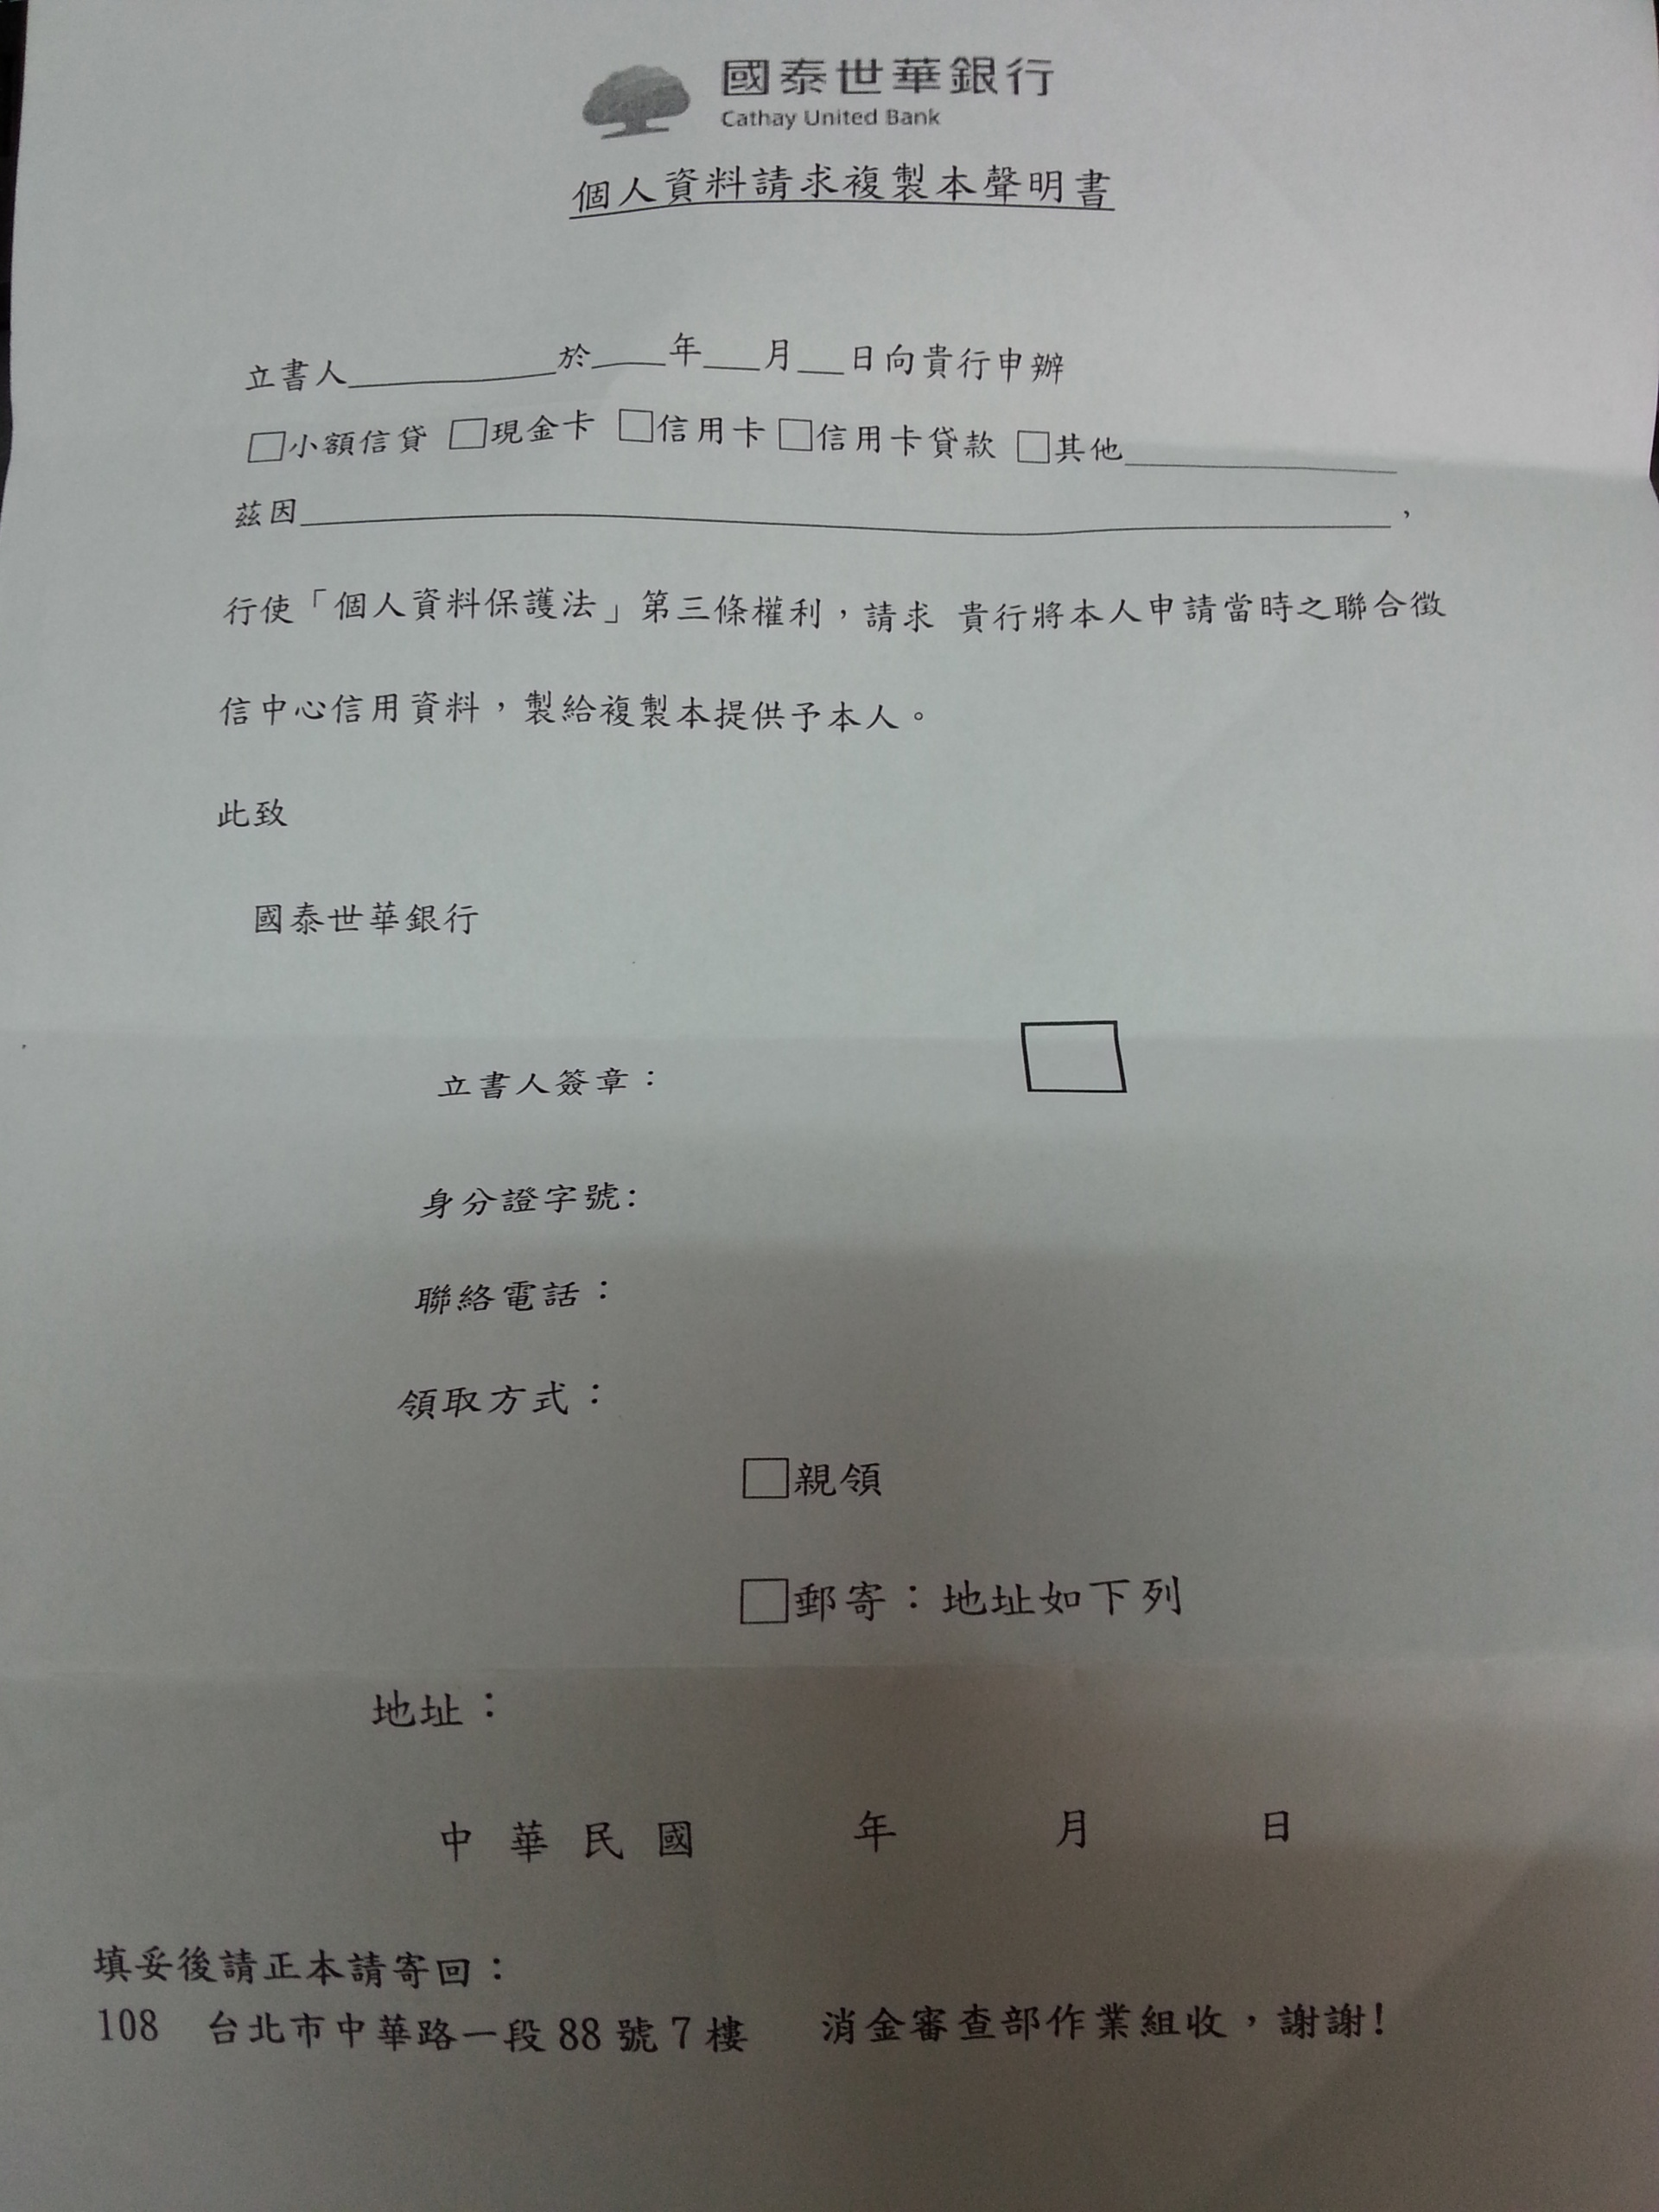 國泰世華銀行
Cathay United Bank
個人資料請求複製本聲明書
立書人__________於____年___月___日向貴行申辦
□小額信貸 □現金卡 □信用卡 □信用卡貸款 □其他______________
茲因______________________________________________________，
行使「個人資料保護法」第三條權利，請求 貴行將本人申請當時之聯合徵
信中心信用資料，製給複製本提供予本人。
此致
國泰世華銀行
立書人簽章：
身分證字號:
聯絡電話：
領取方式：
□親領
□郵寄：地址如下列
地址：
中 華 民 國 年 月 日
填妥後請正本請寄回：
108 台北市中華路一段 88 號 7 樓 消金審查部作業組收，謝謝!